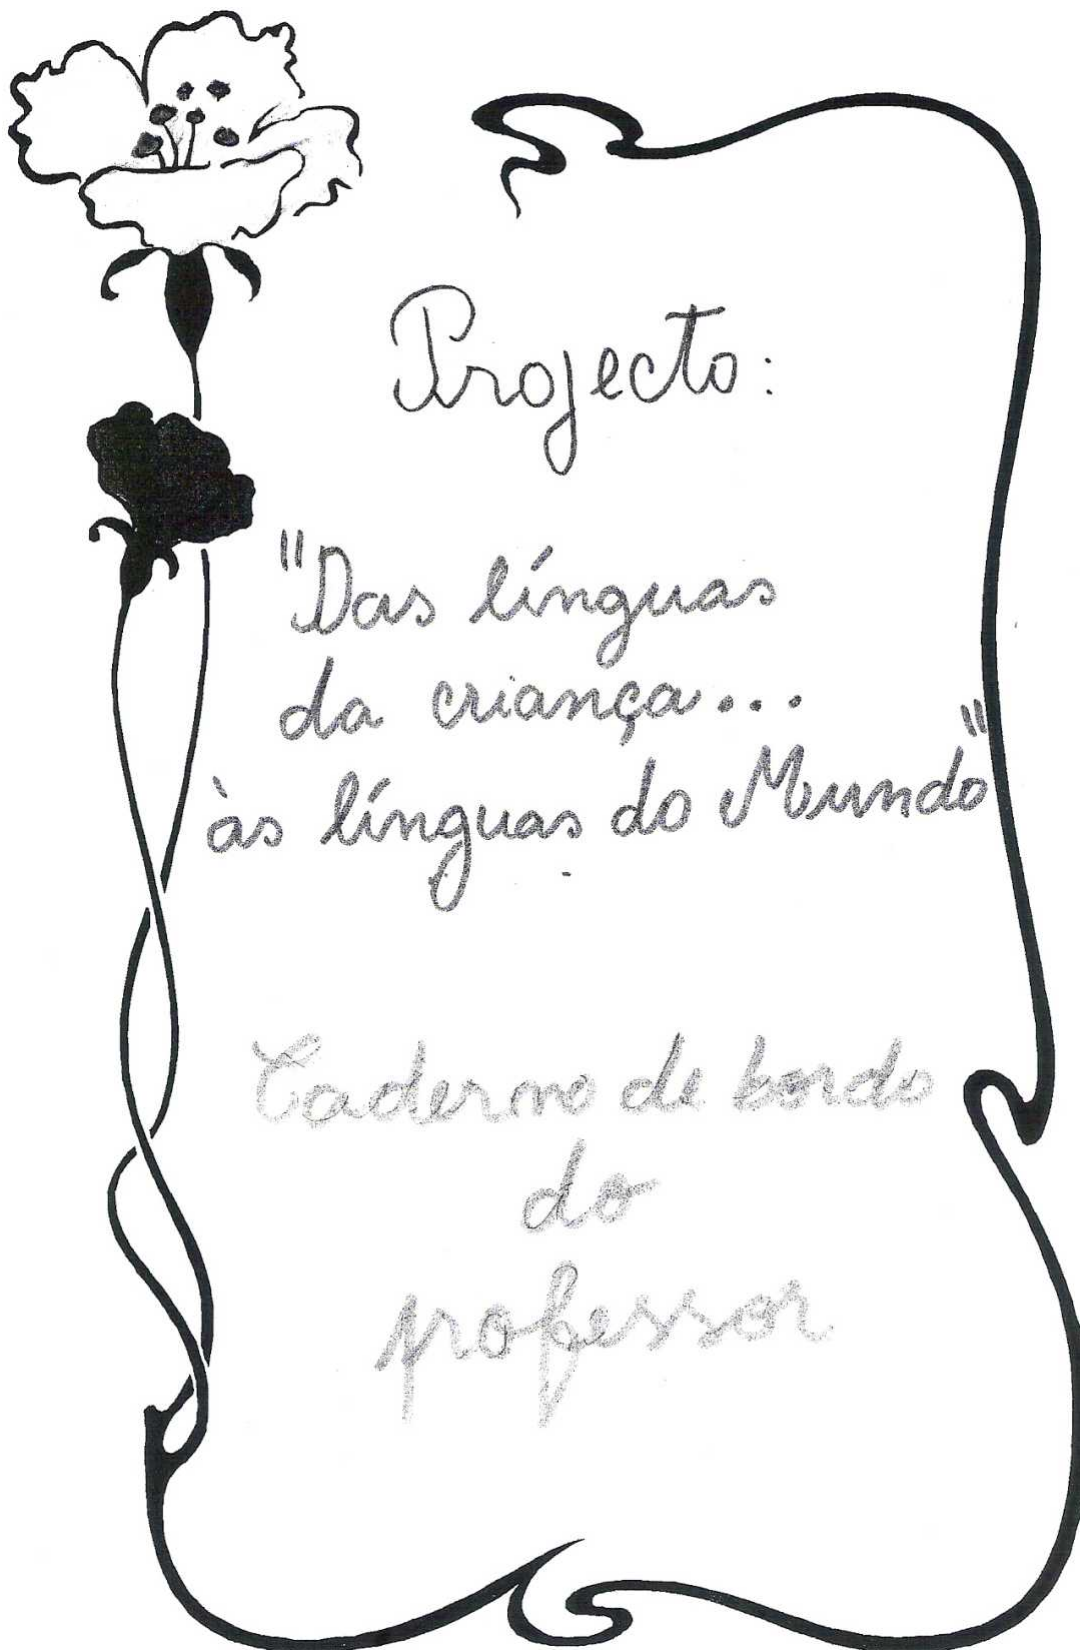 Projecto:
"Das línguas
da criança...
às línguas do Mundo"
Caderno de bordo
do
professor